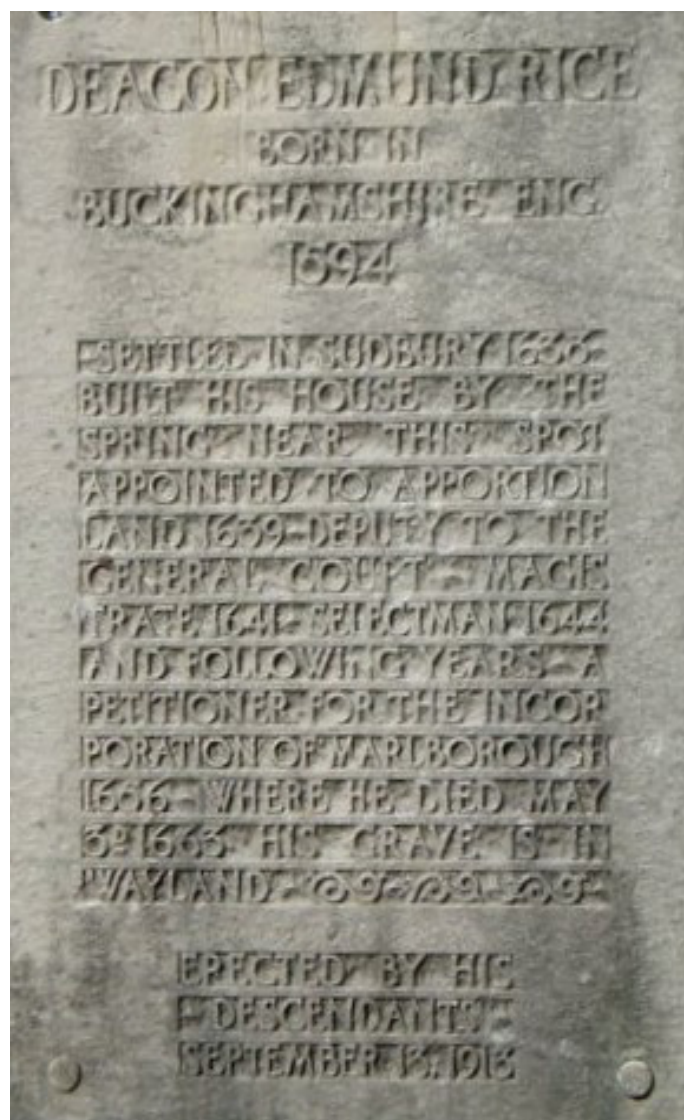 DEACON EDMUND RICE
BORN IN
BUCKINGHAMSHIRE ENG.
1594
-SETTLED IN SUDBURY 1638-
BUILT HIS HOUSE BY THE
SPRING NEAR THIS SPOT
APPOINTED TO APPORTION
LAND 1639-DEPUTY TO THE
GENERAL COURT - MAGIS
TRATE 1641- SELECTMAN 1644
AND FOLLOWING YEARS - A
PETITIONER FOR THE INCOR
PORATION OF MARLBOROUGH
1656 - WHERE HE DIED MAY
3D 1663 HIS GRAVE IS IN
WAYLAND -
ERECTED BY HIS
- DESCENDANTS -
SEPTEMBER 13, 1913